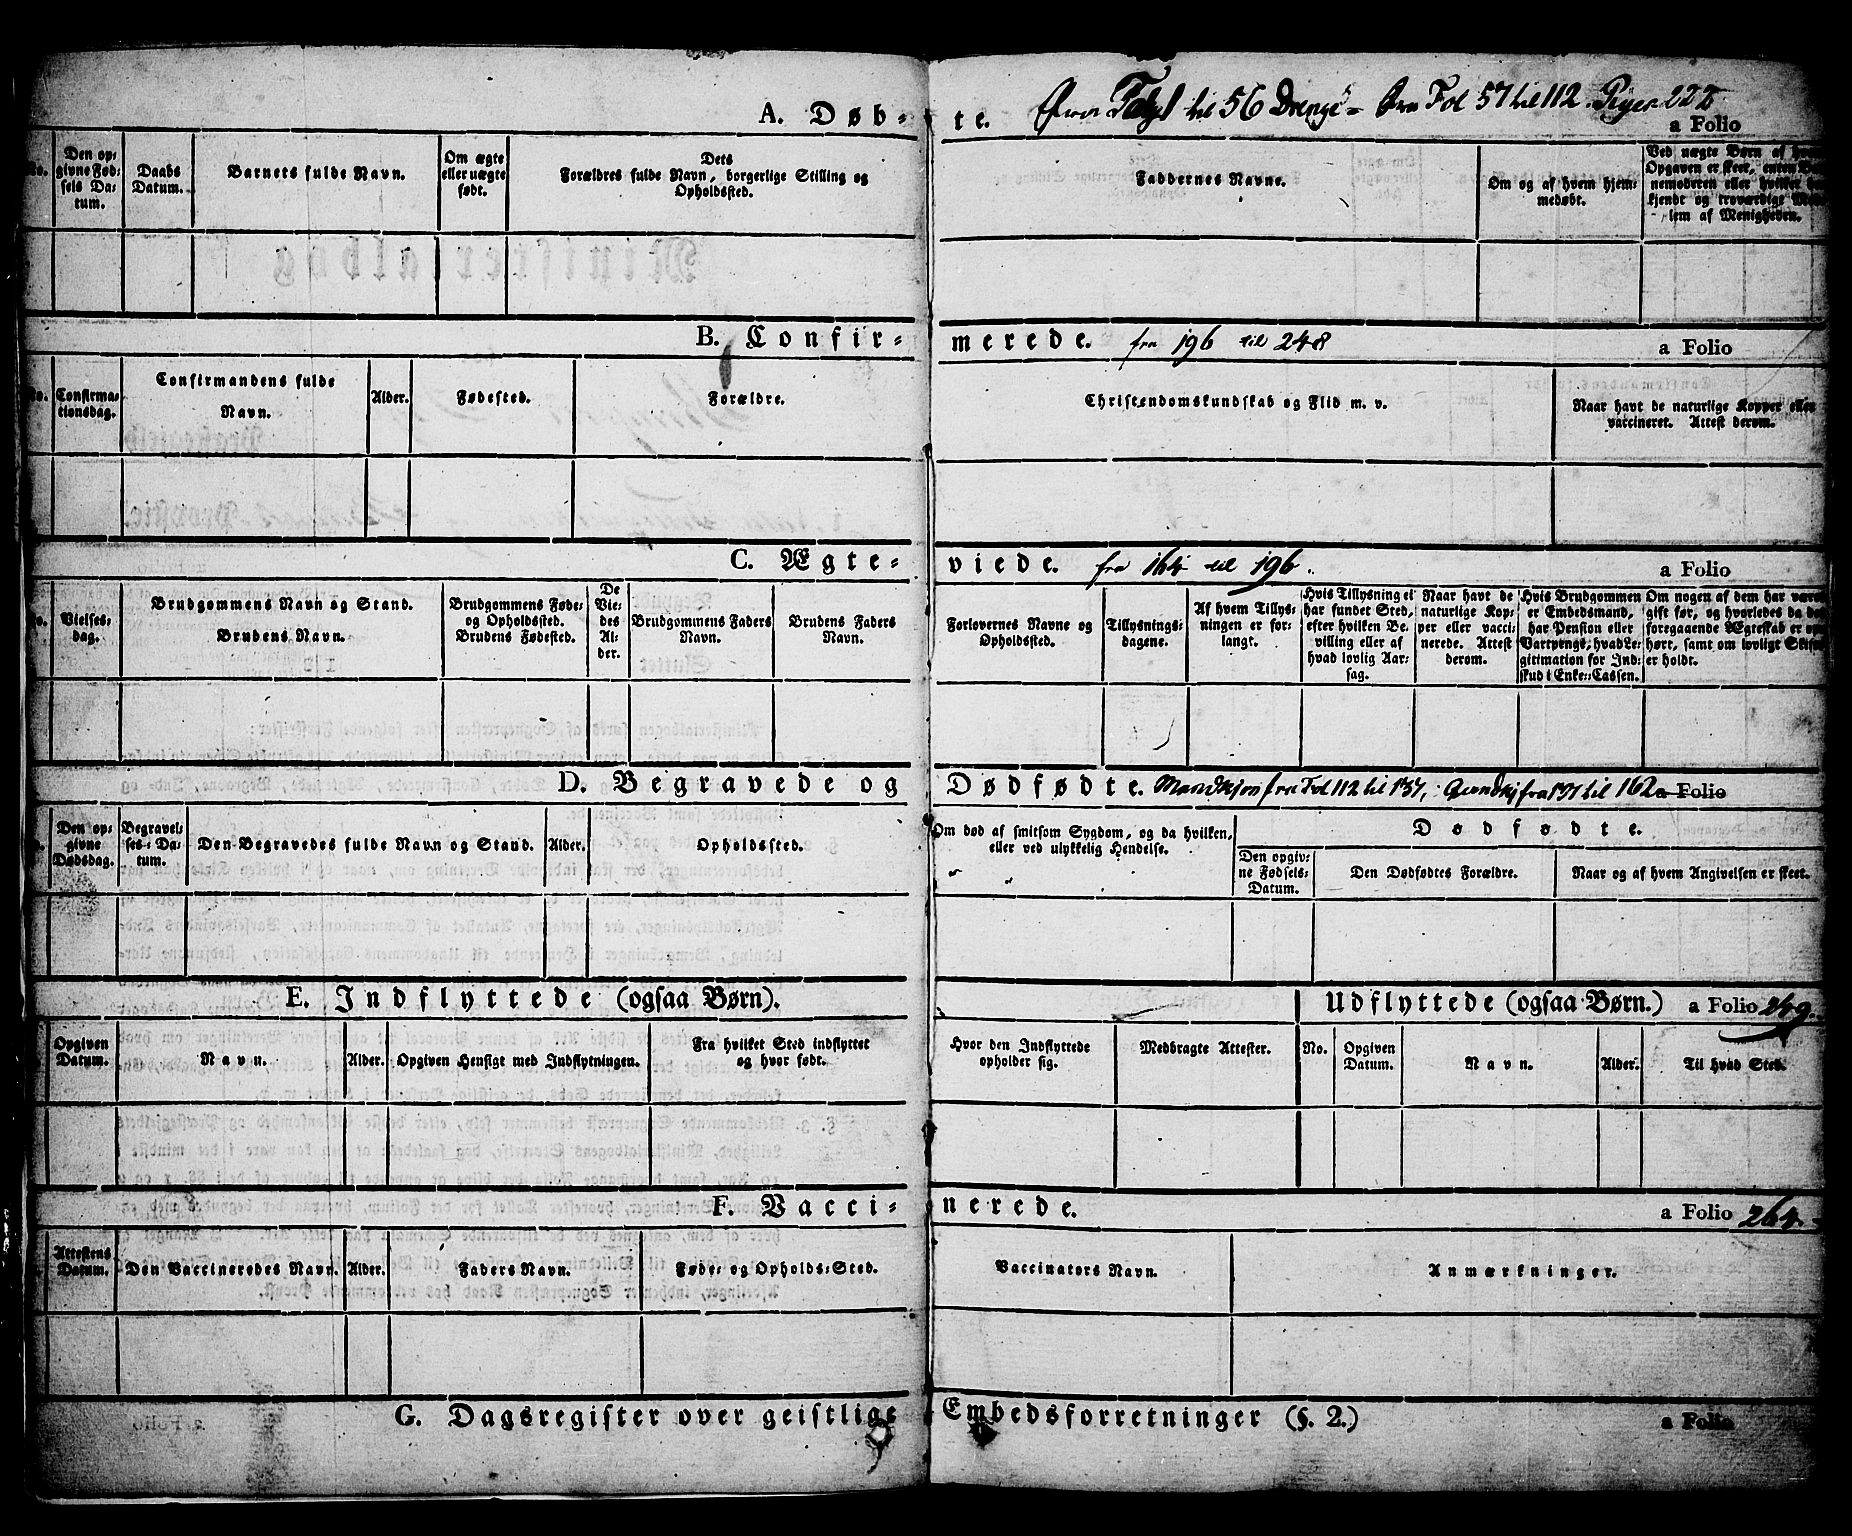 A. Døbte. til 56 Drenge – Fol 57 til 112. a Folio
No.
Den opgivne Fødsels Datum.
Daabs Datum.
Barnets fulde Navn.
Om ægte eller uægte født.
Dets Forældres fulde Navn, borgerlige Stilling og Opholdssted.
Faddernes Navne.
Om og af hvem hjemmedøbt.
Ved uægte Børn af hvem Opgaven er skeet, enten Barnemoderen eller hvilket bekjendt og troværdige Medlem af Menigheden.
B. Confirmerede. fra 196 til 248 a Folio
No.
Confirmationsdag.
Confirmandens fulde Navn.
Alder.
Fødested.
Forældre.
Christendomskundskab og Flid m. v.
Naar havt de naturlige Kopper eller vaccineret. Attest derom.
C. Ægteviede. fra 164 til 196. a Folio
No.
Vielsesdag.
Brudgommens Navn og Stand.
Brudens Navn.
Brudgommens Føde- og Opholdssted.
Brudens Fødested.
De Viedes Alder.
Brudgommens Faders Navn.
Brudens Faders Navn.
Forlovernes Navne og Opholdssted.
Tillysningsdagene.
Af hvem Tillysningen er forlangt.
Hvis Tillysning ei har fundet Sted, efter hvilken Bevilling eller af hvad lovlig Aarsag.
Naar havt de naturlige Kopper eller vaccinerede. Attest derom.
Hvis Brudgommen er Embedsmand, har Pension eller Vartpenge, hvad Legitimation for Indskud i Enke-Cassen.
Om nogen af dem har været gift før, og hvorledes da det foregaaende Ægteskab er ophørt, samt om lovligt Skifte er holdt.
D. Begravede og Dødfødte. Mandkjøn fra Fol 112 til 137, Qvindkj fra 137 til 162 a Folio
Den opgivne Dødsdag.
Begravelses-Datum.
Den Begravedes fulde Navn og Stand.
Alder.
Opholdssted.
Om død af smitsom Sygdom, og da hvilken, eller ved ulykkelig Hendelse.
Dødfødte.
Den opgivne Fødsels-Datum.
Den Dødfødtes Forældre.
Naar og af hvem Angivelsen er skeet.
E. Indflyttede (ogsaa Børn). Udflyttede (ogsaa Børn.) a Folio 249.
Opgiven Datum.
Navn.
Alder.
Opgiven Hensigt med Indflytningen.
Fra hvilket Sted indflyttet og hvor født.
Hvor den Indflyttede opholder sig.
Medbragte Attester.
No.
Opgiven Datum.
Navn.
Alder.
Til hvad Sted.
F. Vaccinerede. a Folio 264.
Attestens Datum.
Den Vaccineredes Navn.
Alder.
Faders Navn.
Føde- og Opholds-Sted.
Vaccinators Navn.
Anmærkninger.
G. Dagsregister over geistlige Embedsforretninger (§. 2.) a Folio